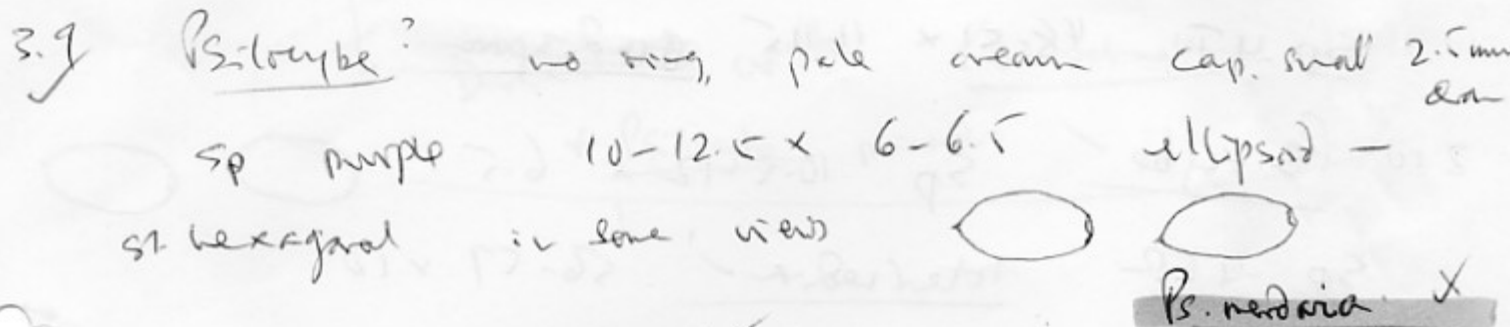 3.9 Psilocybe? no ring, pale cream cap. small 2.5mm
diam
sp purple 10-12.5 x 6-6.5 ellipsoid -
sl. hexagonal in some views
Ps. merdaria X